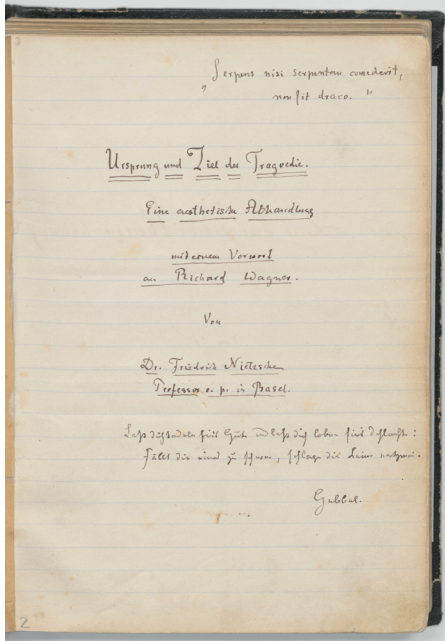 „Serpens nisi serpentem comederit,
non fit draco."
Ursprung und Ziel der Tragoedie.
Eine aesthetische Abhandlung
mit einem Vorwort
an Richard Wagner.
Von
Dr. Friedrich Nietzsche
Professor o. p. in Basel.
Laß dich tadeln fürs Gute und laß dich loben fürs Schlechte:
Fällt dir eines zu schwer, schlage die Leier entzwei.
Hebbel.
2